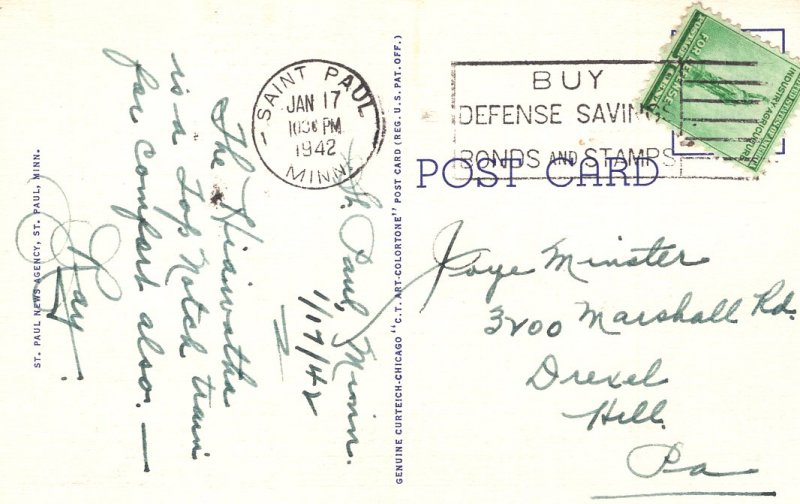 St. Paul, Minn.
1/17/42
The Hiawatha
is a Top Notch train
for comfort also. —
Ray.
ST. PAUL NEWS AGENCY, ST. PAUL, MINN.
GENUINE CURTEICH-CHICAGO "C.T. ART-COLORTONE" POST CARD (REG. U.S. PAT. OFF.)
SAINT PAUL
JAN 17
PM
1942
MINN.
BUY
DEFENSE SAVINGS
BONDS AND STAMPS
POST CARD
FOR DEFENSE
INDUSTRY AGRICULTURE
Joye Minster
3200 Marshall Rd.
Drexel
Hill.
Pa